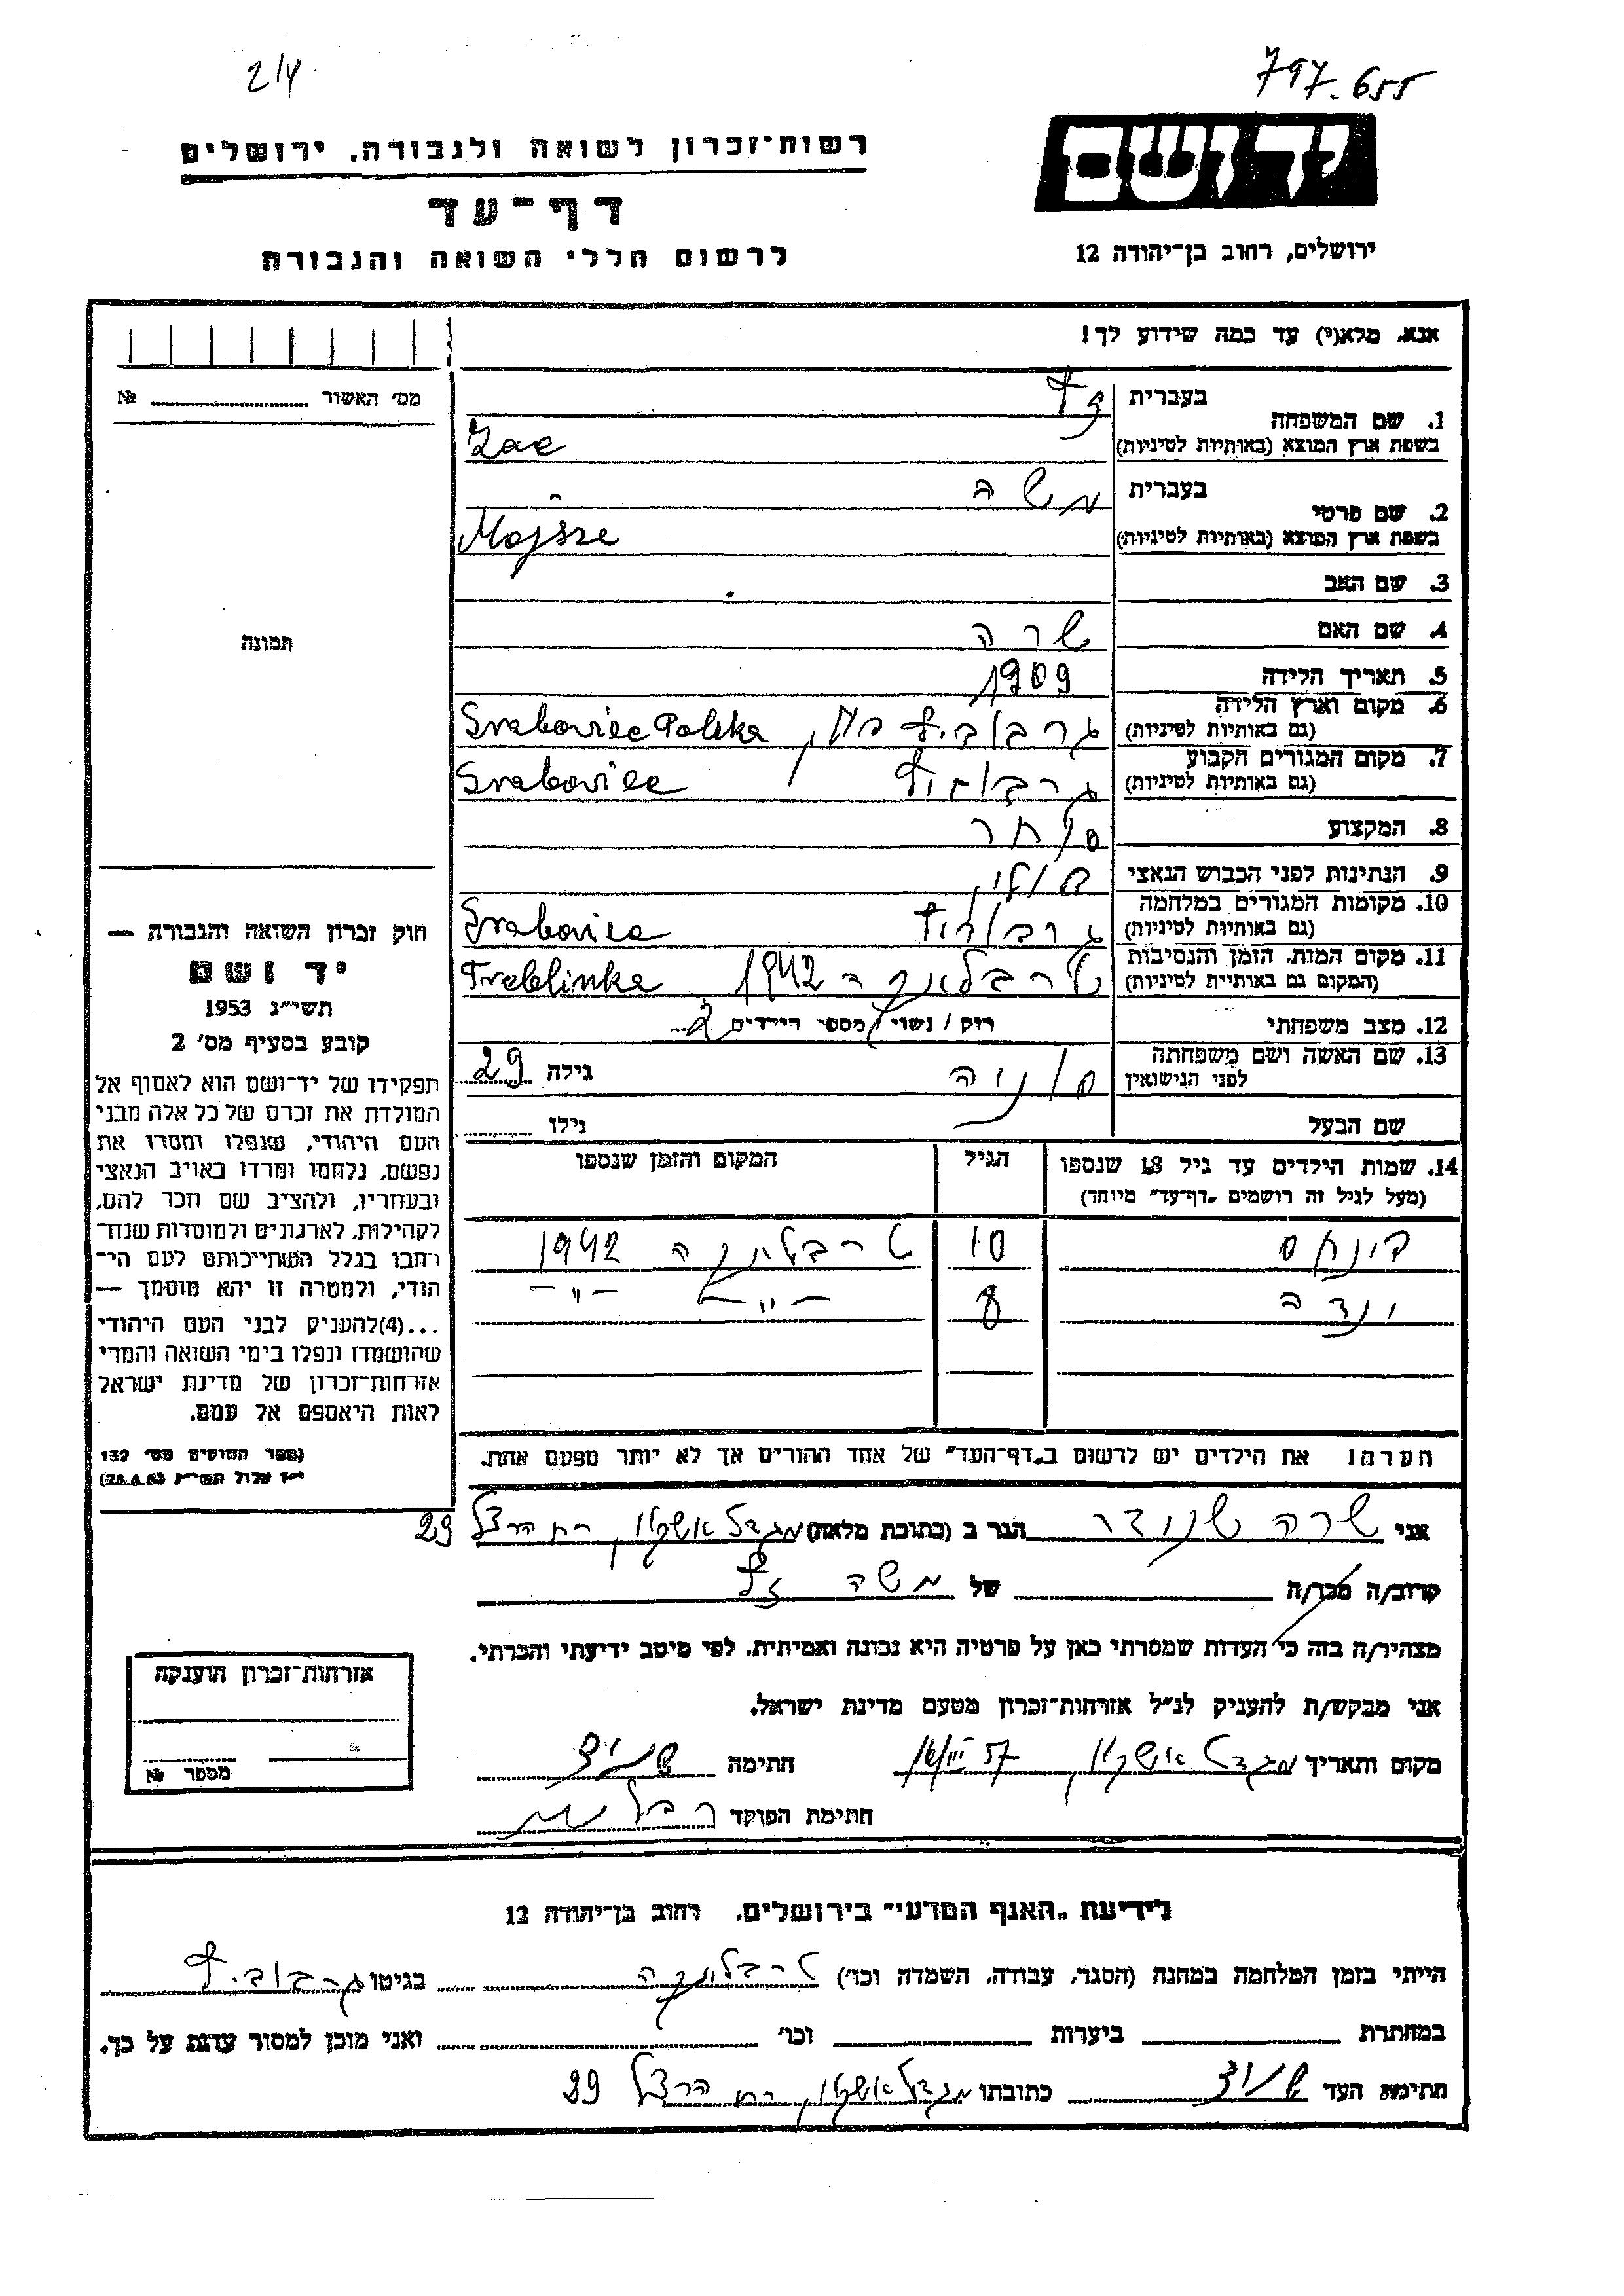 2/4
797.655
יד ושם
רשות־זכרון לשואה ולגבורה, ירושלים
דף־עד
לרשום חללי השואה והגבורה
ירושלים, רחוב בן־יהודה 12
אנא, מלא(י) עד כמה שידוע לך!
מס׳ האשור №
1. שם המשפחה בעברית
בשפת ארץ המוצא (באותיות לטיניות) Zac
2. שם פרטי בעברית משה
בשפת ארץ המוצא (באותיות לטיניות) Mojsze
3. שם האב
4. שם האם שרה
5. תאריך הלידה 1909
6. מקום וארץ הלידה
(גם באותיות לטיניות) Polska
7. מקום המגורים הקבוע
(גם באותיות לטיניות)
8. המקצוע סוחר
9. הנתינות לפני הכבוש הנאצי פולין
10. מקומות המגורים במלחמה
(גם באותיות לטיניות)
11. מקום המות, הזמן והנסיבות
(המקום גם באותיות לטיניות) טרבלינקה 1942 Treblinka
12. מצב משפחתי רוק / נשוי / מספר הילדים 2
13. שם האשה ושם משפחתה
לפני הנישואין סוניה גילה 29
שם הבעל גילו
14. שמות הילדים עד גיל 18 שנספו הגיל המקום והזמן שנספו
(מעל לגיל זה רושמים „דף־עד״ מיוחד)
פינחס 10 טרבלינקה 1942
8 –״– –״–
הערה! את הילדים יש לרשום ב„דף־העד״ של אחד ההורים אך לא יותר מפעם אחת.
תמונה
חוק זכרון השואה והגבורה —
יד ושם
תשי״ג 1953
קובע בסעיף מס׳ 2
תפקידו של יד־ושם הוא לאסוף אל
המולדת את זכרם של כל אלה מבני
העם היהודי, שנפלו ומסרו את
נפשם, נלחמו ומרדו באויב הנאצי
ובעוזריו, ולהציב שם וזכר להם,
לקהילות, לארגונים ולמוסדות שנח־
רבו בגלל השתייכותם לעם הי־
הודי, ולמטרה זו יהא מוסמך —
...(4)להעניק לבני העם היהודי
שהושמדו ונפלו בימי השואה והמרי
אזרחות־זכרון של מדינת ישראל
לאות היאספם אל עמם.
(ספר החוקים מס׳ 132
אני שרה שנידר הגר ב (כתובת מלאה) מגדל אשקלון, רח הרצל 29
קרוב/ה מכר/ה של משה
מצהיר/ה בזה כי העדות שמסרתי כאן על פרטיה היא נכונה ואמיתית, לפי מיטב ידיעתי והכרתי.
אני מבקש/ת להעניק לנ״ל אזרחות־זכרון מטעם מדינת ישראל.
מקום ותאריך מגדל אשקלון, חתימה
חתימת הפוקד
אזרחות־זכרון הוענקה
מספר №
לידיעת „האגף המדעי״ בירושלים, רחוב בן־יהודה 12
הייתי בזמן המלחמה במחנה (הסגר, עבודה, השמדה וכו׳) טרבלינקה בגיטו
במחתרת ביערות וכו׳ ואני מוכן למסור עדות על כך.
חתימת העד כתובתו מגדל אשקלון, רח הרצל 29